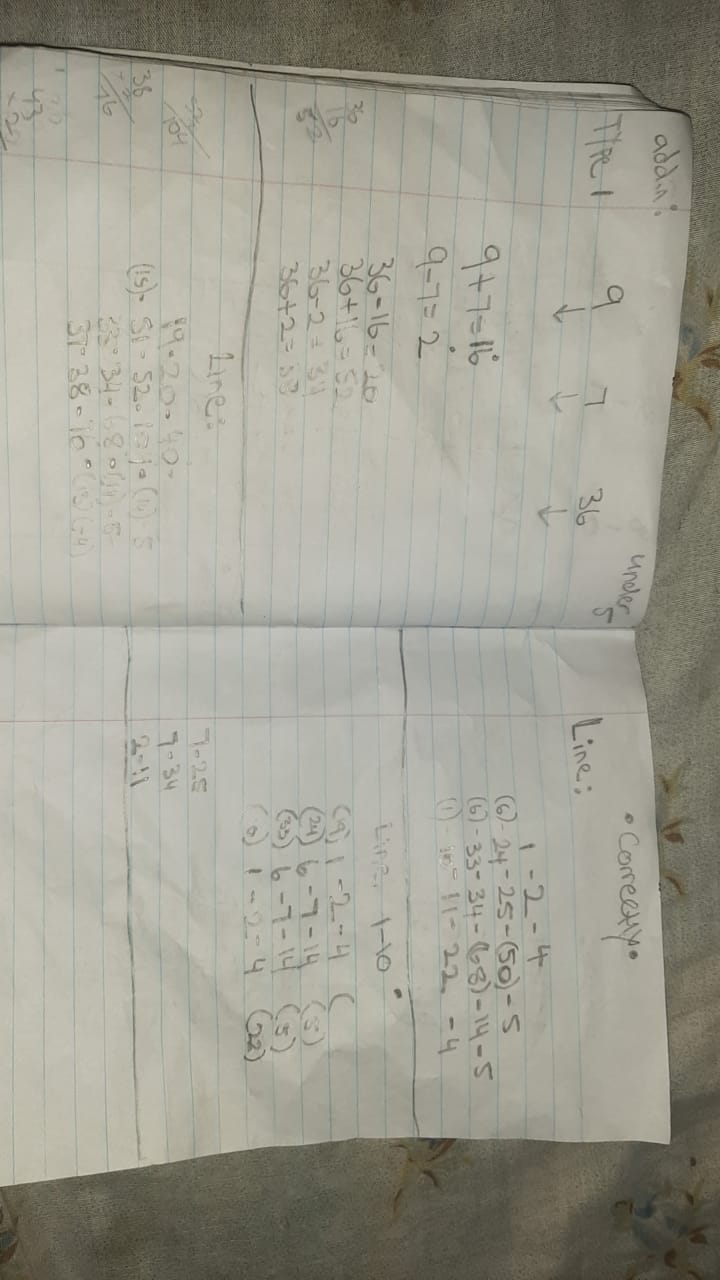 addin:
TYPE 1 9 7 36 under 5
↓ ↓ ↓
9+7=16
9-7=2
36-16=20
36+16=52
36-2=34
36+2=38
36
16
52
Line:
19-20-40-
(15)- 51-52-104-(14) 5
34-68-(14)-5
37-38-16-(12)(-4)
104
36
43
•Correctly•
Line:
1-2-4
(6)-24-25-(50)-5
(6)-33-34-(68)-14-5
(1)-10-11-22-4
Line: 1-10
(19) 1-2-4 (
(24) 6-7-14 (5)
(33) 6-7-14 (5)
1-2-4 (22)
7-25
7-34
2-11